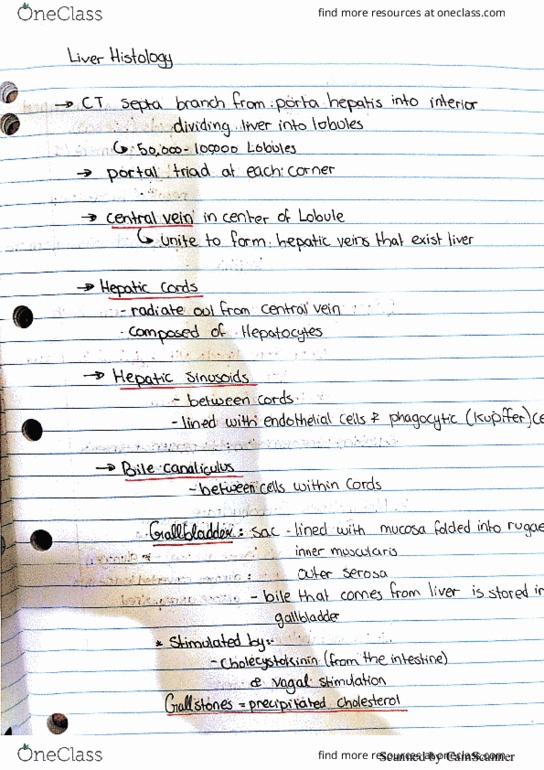 OneClass
find more resources at oneclass.com
Liver Histology
→ CT septa branch from porta hepatis into interior
dividing liver into lobules
↳ 50,000-100,000 Lobules
→ portal triad at each corner
→ central vein in center of Lobule
↳ unite to form hepatic veins that exist liver
→ Hepatic Cords
- radiate out from central vein
- composed of Hepatocytes
→ Hepatic Sinusoids
- between cords
- lined with endothelial cells & phagocytic (kupffer) ce
→ Bile canaliculus
- between cells within Cords
Gallbladder: sac - lined with mucosa folded into rugae
inner muscularis
outer serosa
- bile that comes from liver is stored in
gallbladder
* Stimulated by:
- Cholecystokinin (from the intestine)
& vagal stimulation
Gallstones = precipitated cholesterol
OneClass
find more resources at oneclass.com
Scanned by CamScanner